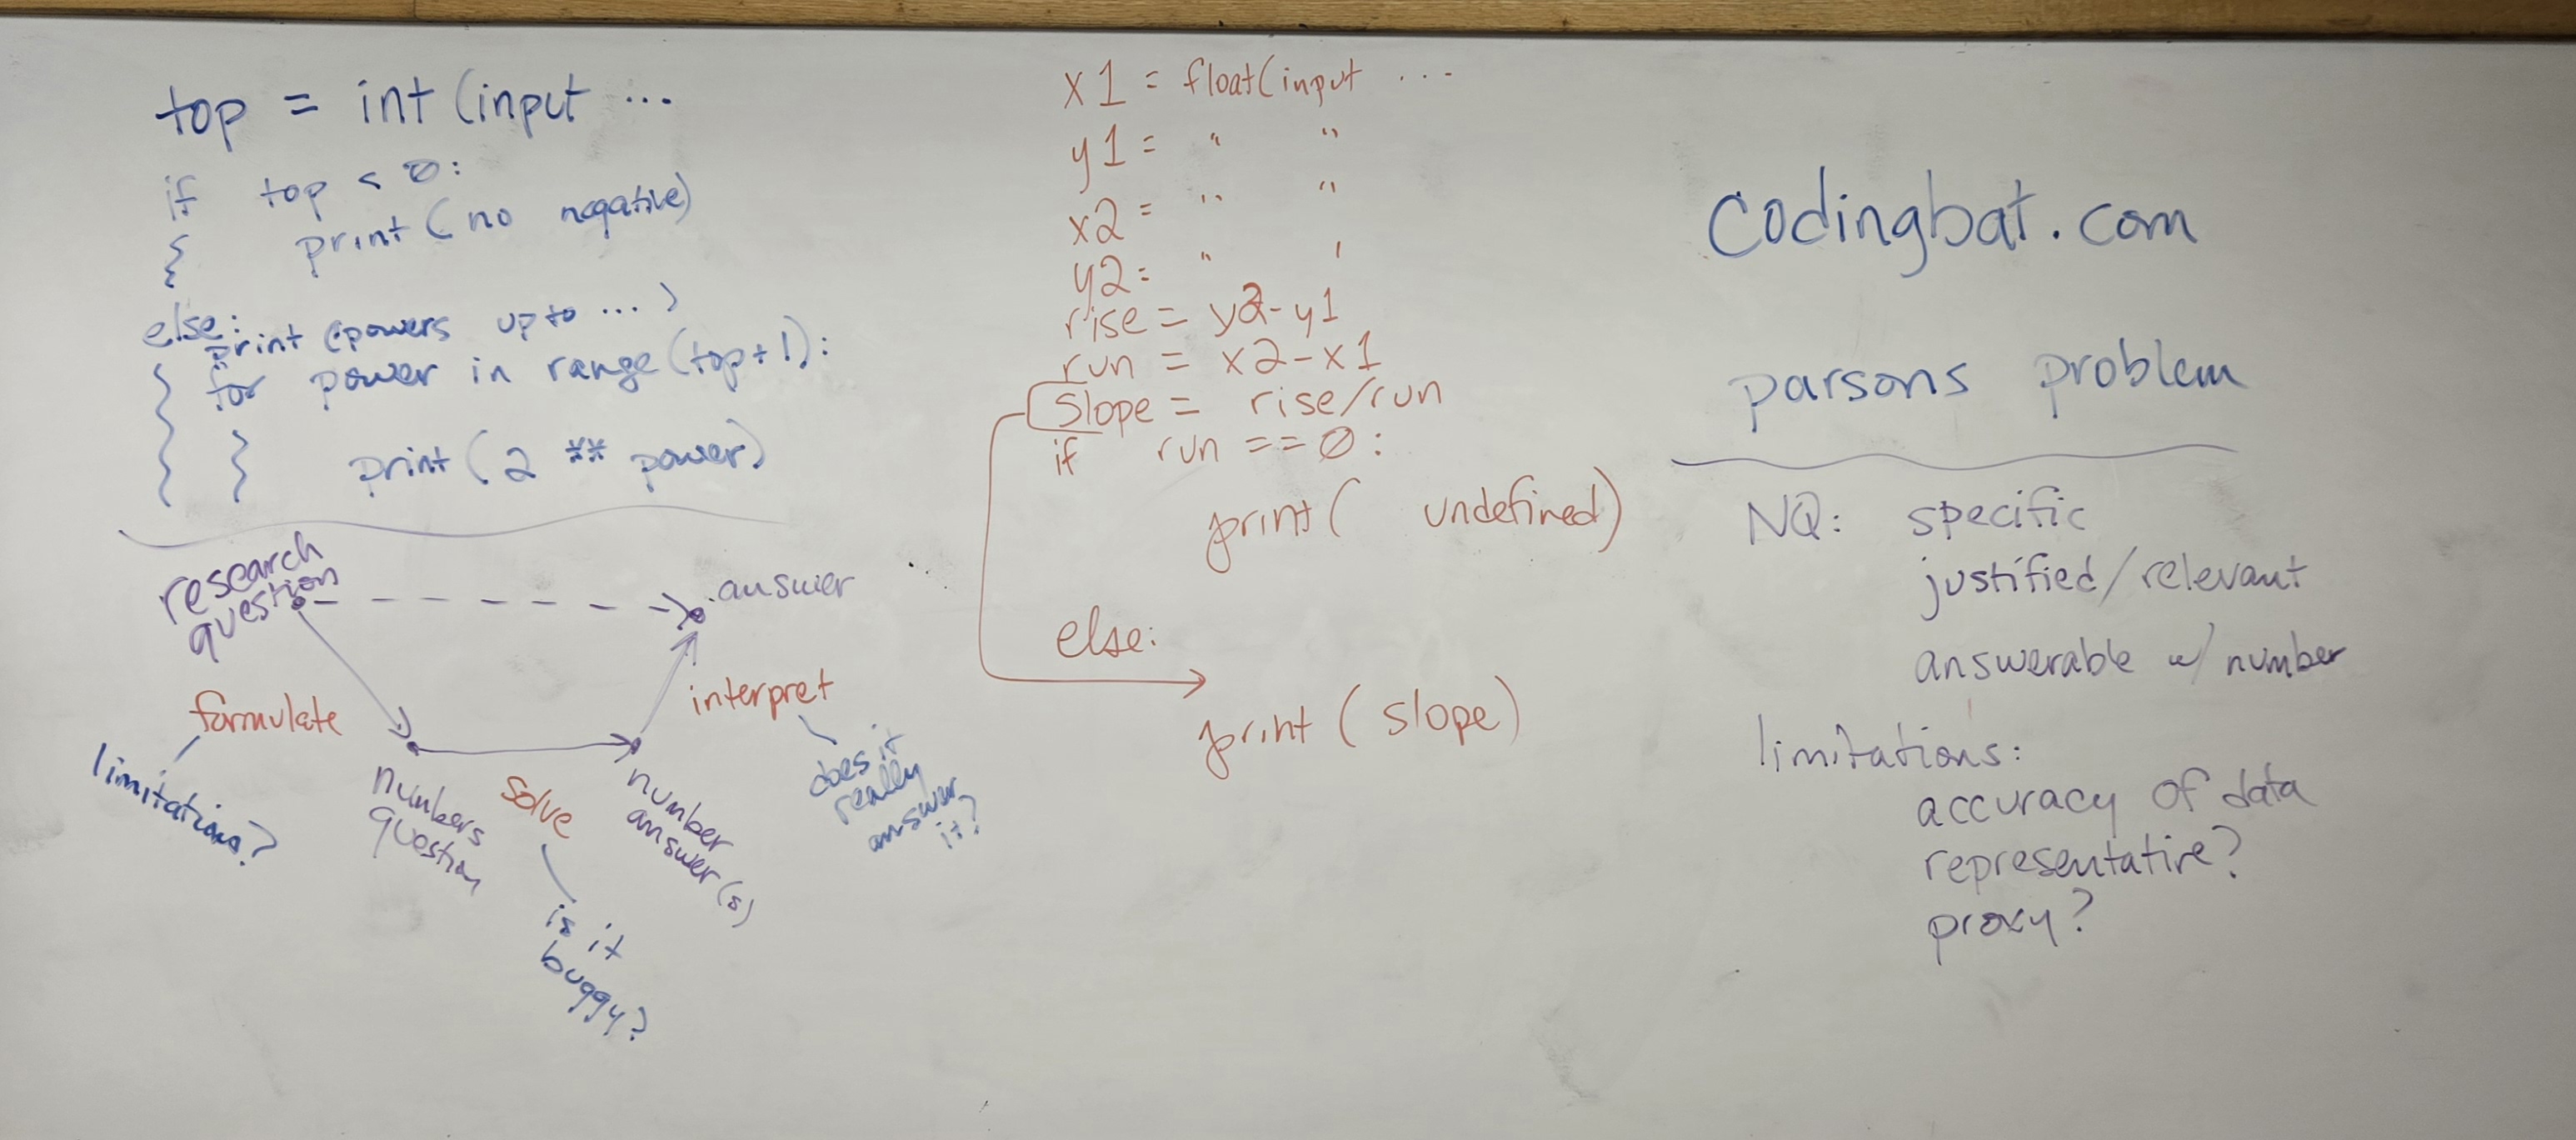 top = int (input ...
if top < 0:
print ( no negative)
else:
print (powers up to ... )
for power in range (top+1):
print ( 2 ** power)
research
question
answer
formulate
limitations?
numbers
question
solve
is it
buggy?
number
answer(s)
interpret
does it
really
answer
it?
x1 = float(input ...
y1 = " "
x2 = " "
y2 = " '
rise = y2-y1
run = x2-x1
slope = rise/run
if run == 0:
print( undefined)
else:
print ( slope)
codingbat.com
parsons problem
NQ: specific
justified/relevant
answerable w/ number
limitations:
accuracy of data
representative?
proxy?